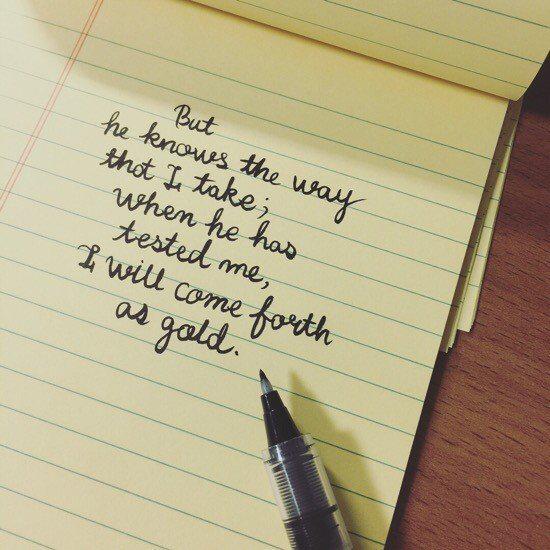 But
he knows the way
that I take;
when he has
tested me,
I will come forth
as gold.